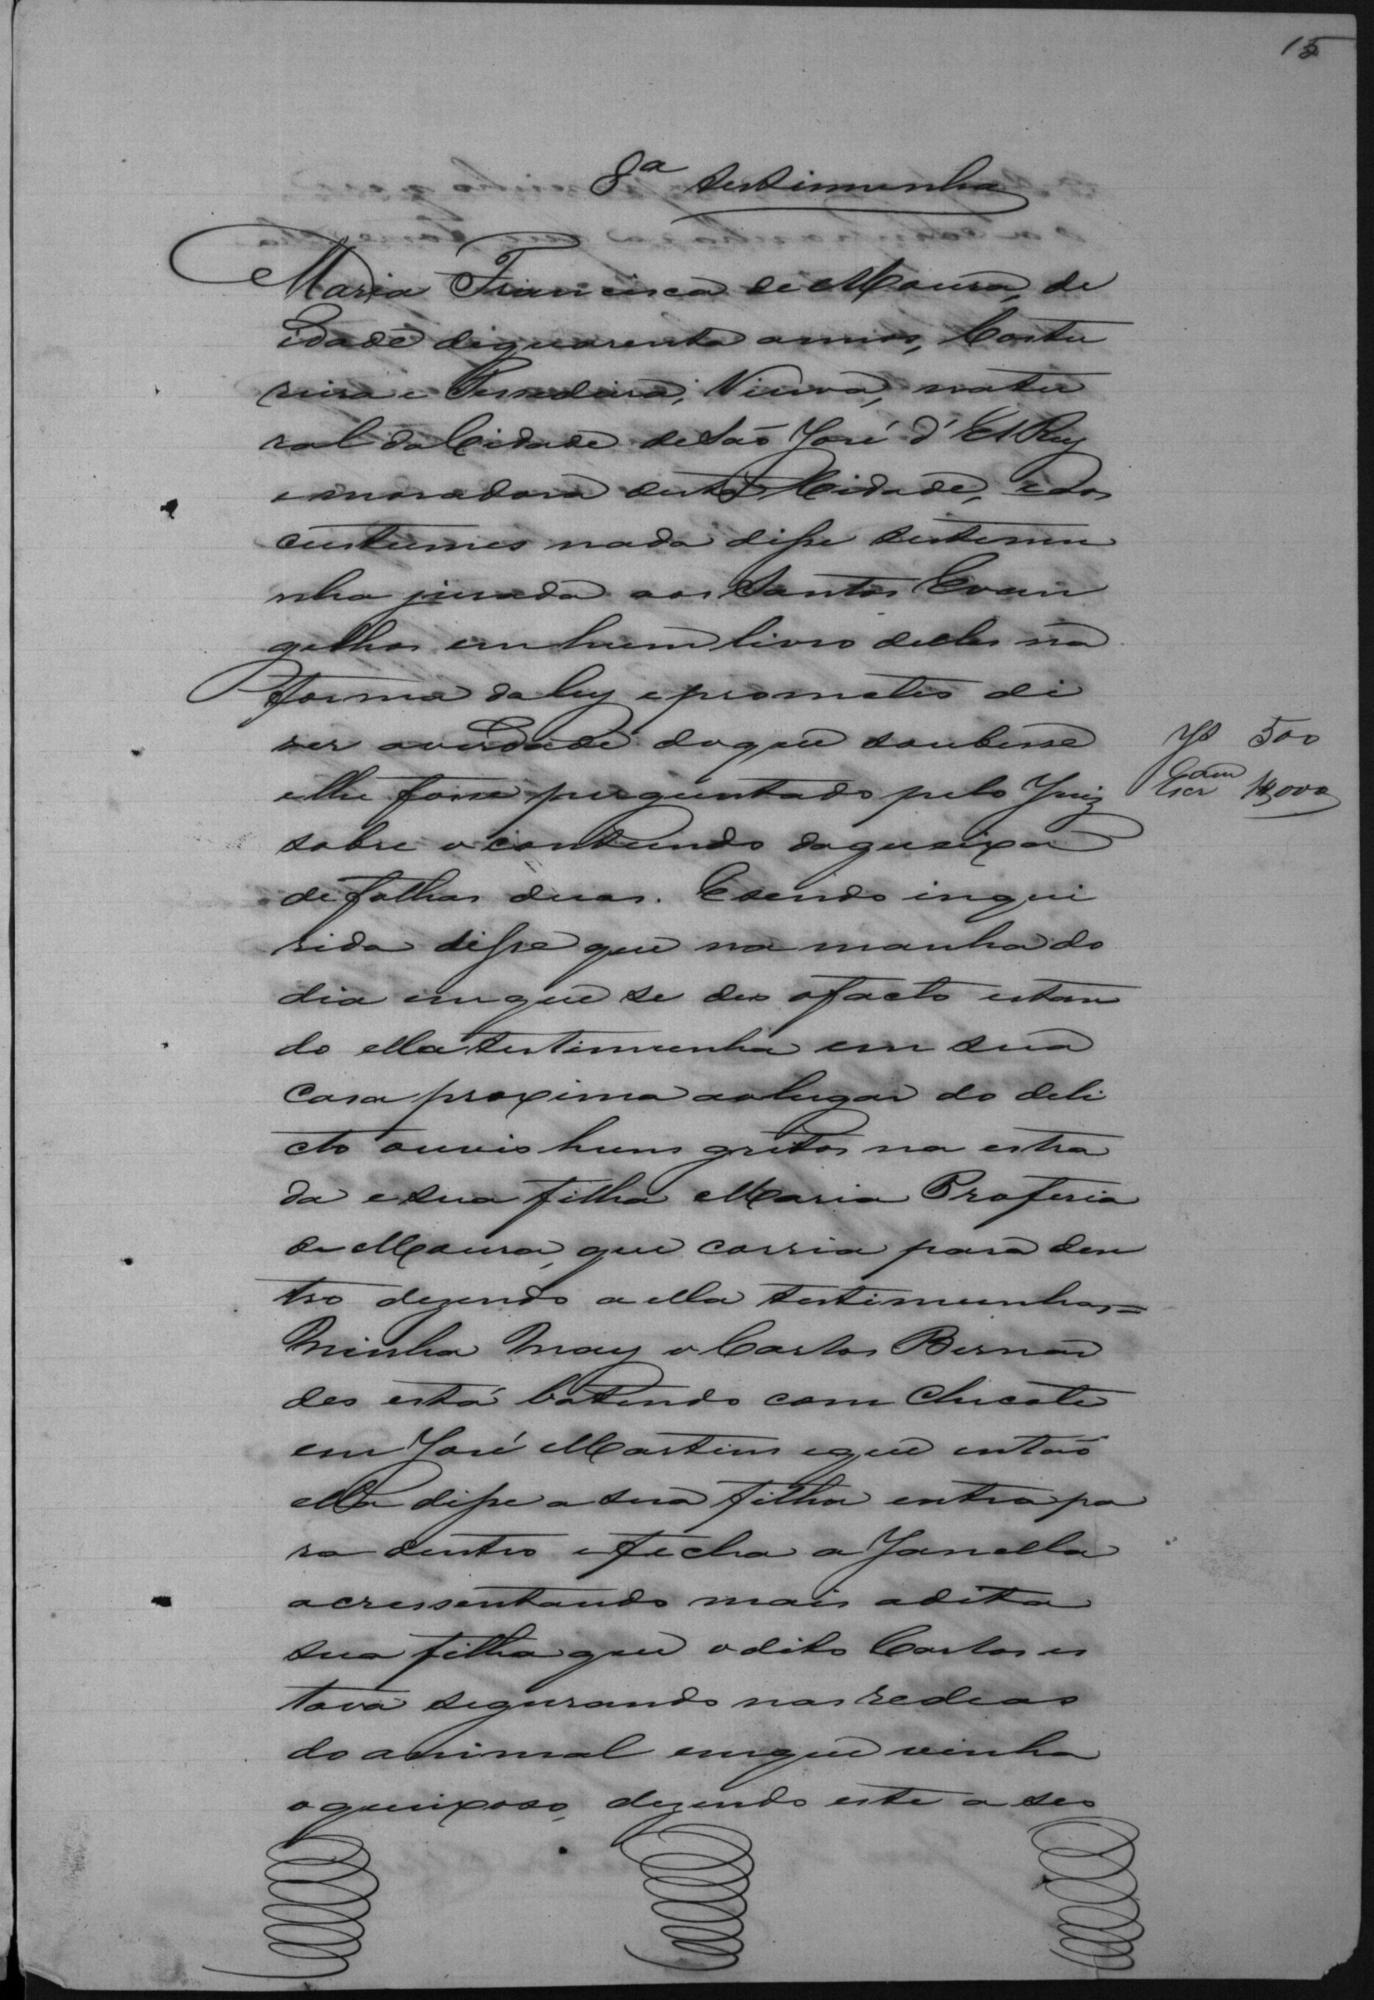 15
8ª testimunha
Maria Francisca de Moura, de
idade de quarenta annos, Costu
reira e Tessedeira, Viuva, natu
ral da Cidade de São José d'El Rey
e moradora desta Cidade, e aos
custumes nada disse testemu
nha jurada aos Santos Evan
gelhos em hum livro delles na
forma da ley e prometeo di
ser a verdade do que soubesse
e lhe fosse perguntado pelo Juiz
sobre o contiundo da queixa
de folhas duas. E sendo inqui
rida disse que na manha do
dia em que se deo o facto estan
do ella testimunha em sua
casa proxima ao lugar do deli
cto ouvio huns gritos na estra
da e sua filha Maria Proferia
de Moura, que corria para den
tro dezendo a ella testimunha =
Minha May o Carlos Bernan
des está batendo com Chicote
em José Martins e que então
ella disse a sua filha entra pa
ra dentro e fecha a Janella
acressentando mais a dita
sua filha que o dito Carlos es
tava segurando nas redeas
do animal em que vinha
o queixoso, dezendo este a seo
Jz 500
Escr 1$000